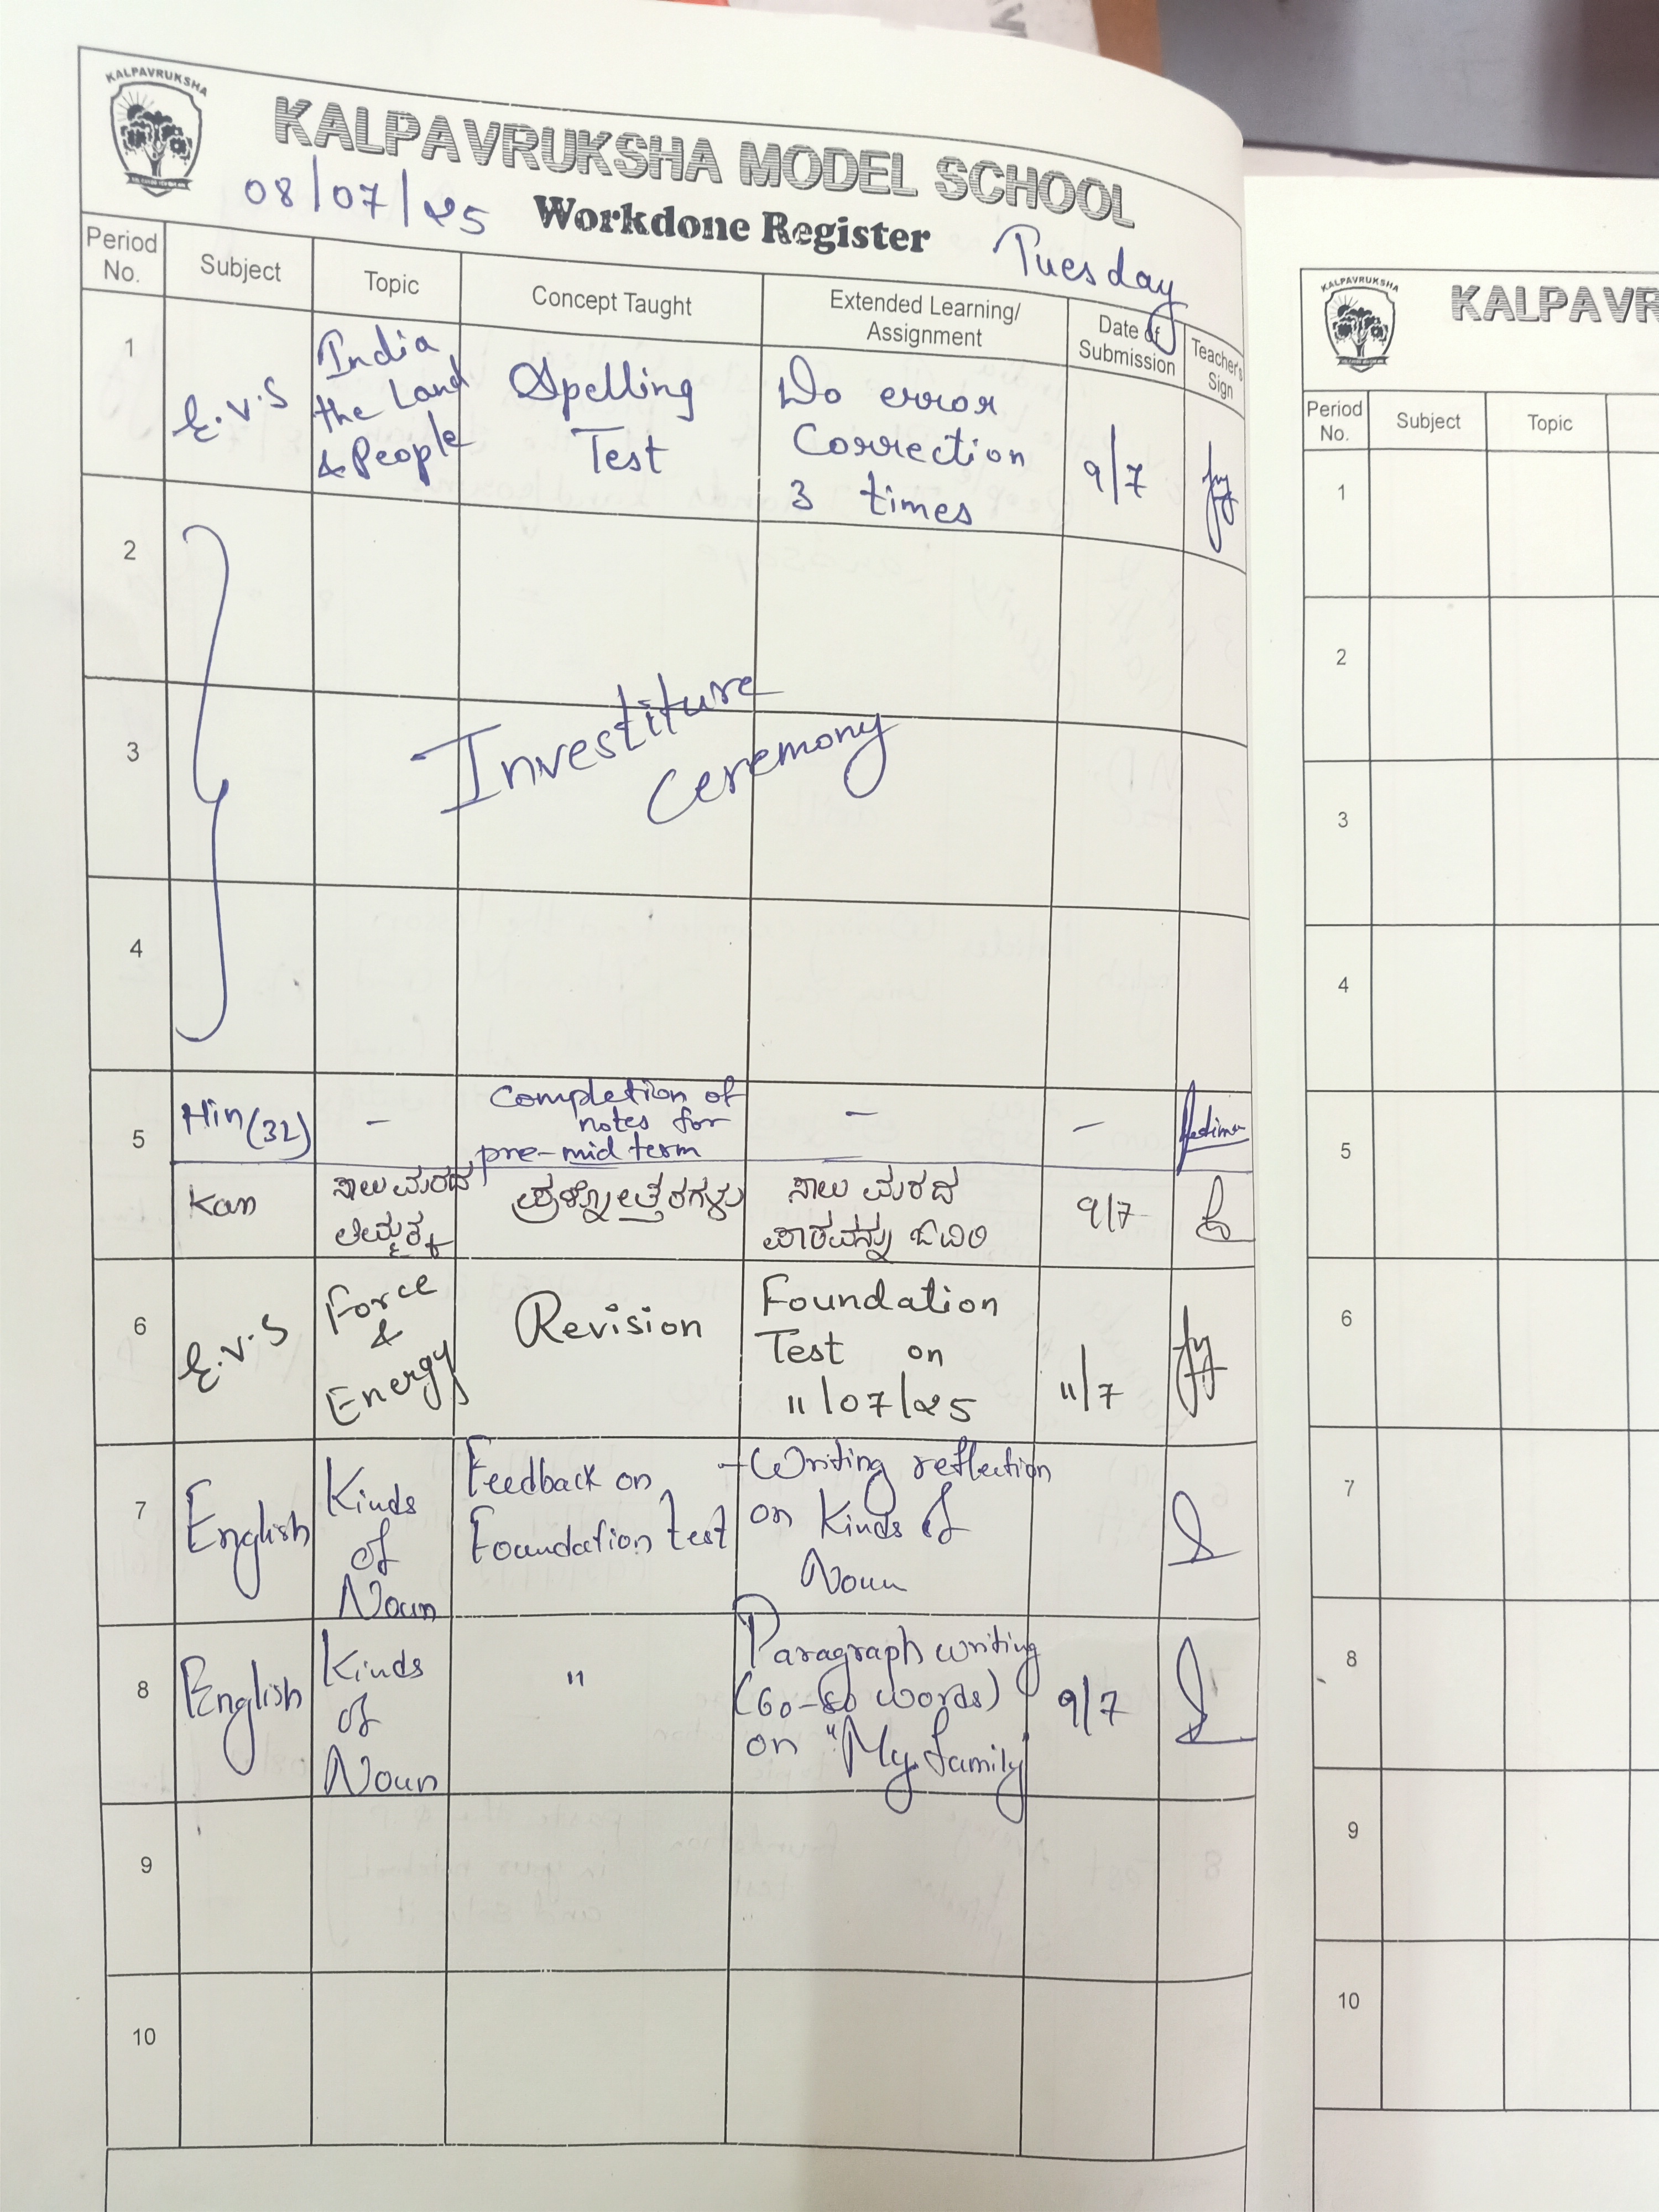 KALPAVRUKSHA
KALPAVRUKSHA MODEL SCHOOL
08/07/25 Workdone Register Tuesday
Period No. Subject Topic Concept Taught Extended Learning/ Assignment Date of Submission Teacher's Sign
1 E.V.S India the Land & People Spelling Test Do error Correction 3 times 9/7
2
3 Investiture Ceremony
4
5 Hin (3L) - Completion of notes for pre-mid term - -
Kan ಸಾಲು ಮರದ ತಿಮ್ಮಕ್ಕ ಪ್ರಶ್ನೋತ್ತರಗಳು ಸಾಲು ಮರದ ಪಾಠವನ್ನು ಓದಿರಿ 9/7
6 E.V.S Force & Energy Revision Foundation Test on 11/07/25 11/7
7 English Kinds of Noun Feedback on Foundation test - Writing reflection on Kinds of Noun
8 English Kinds of Noun " Paragraph writing (60-80 words) on "My family" 9/7
9
10
KALPAVRUKSHA
KALPAVR
Period No. Subject Topic
1
2
3
4
5
6
7
8
9
10